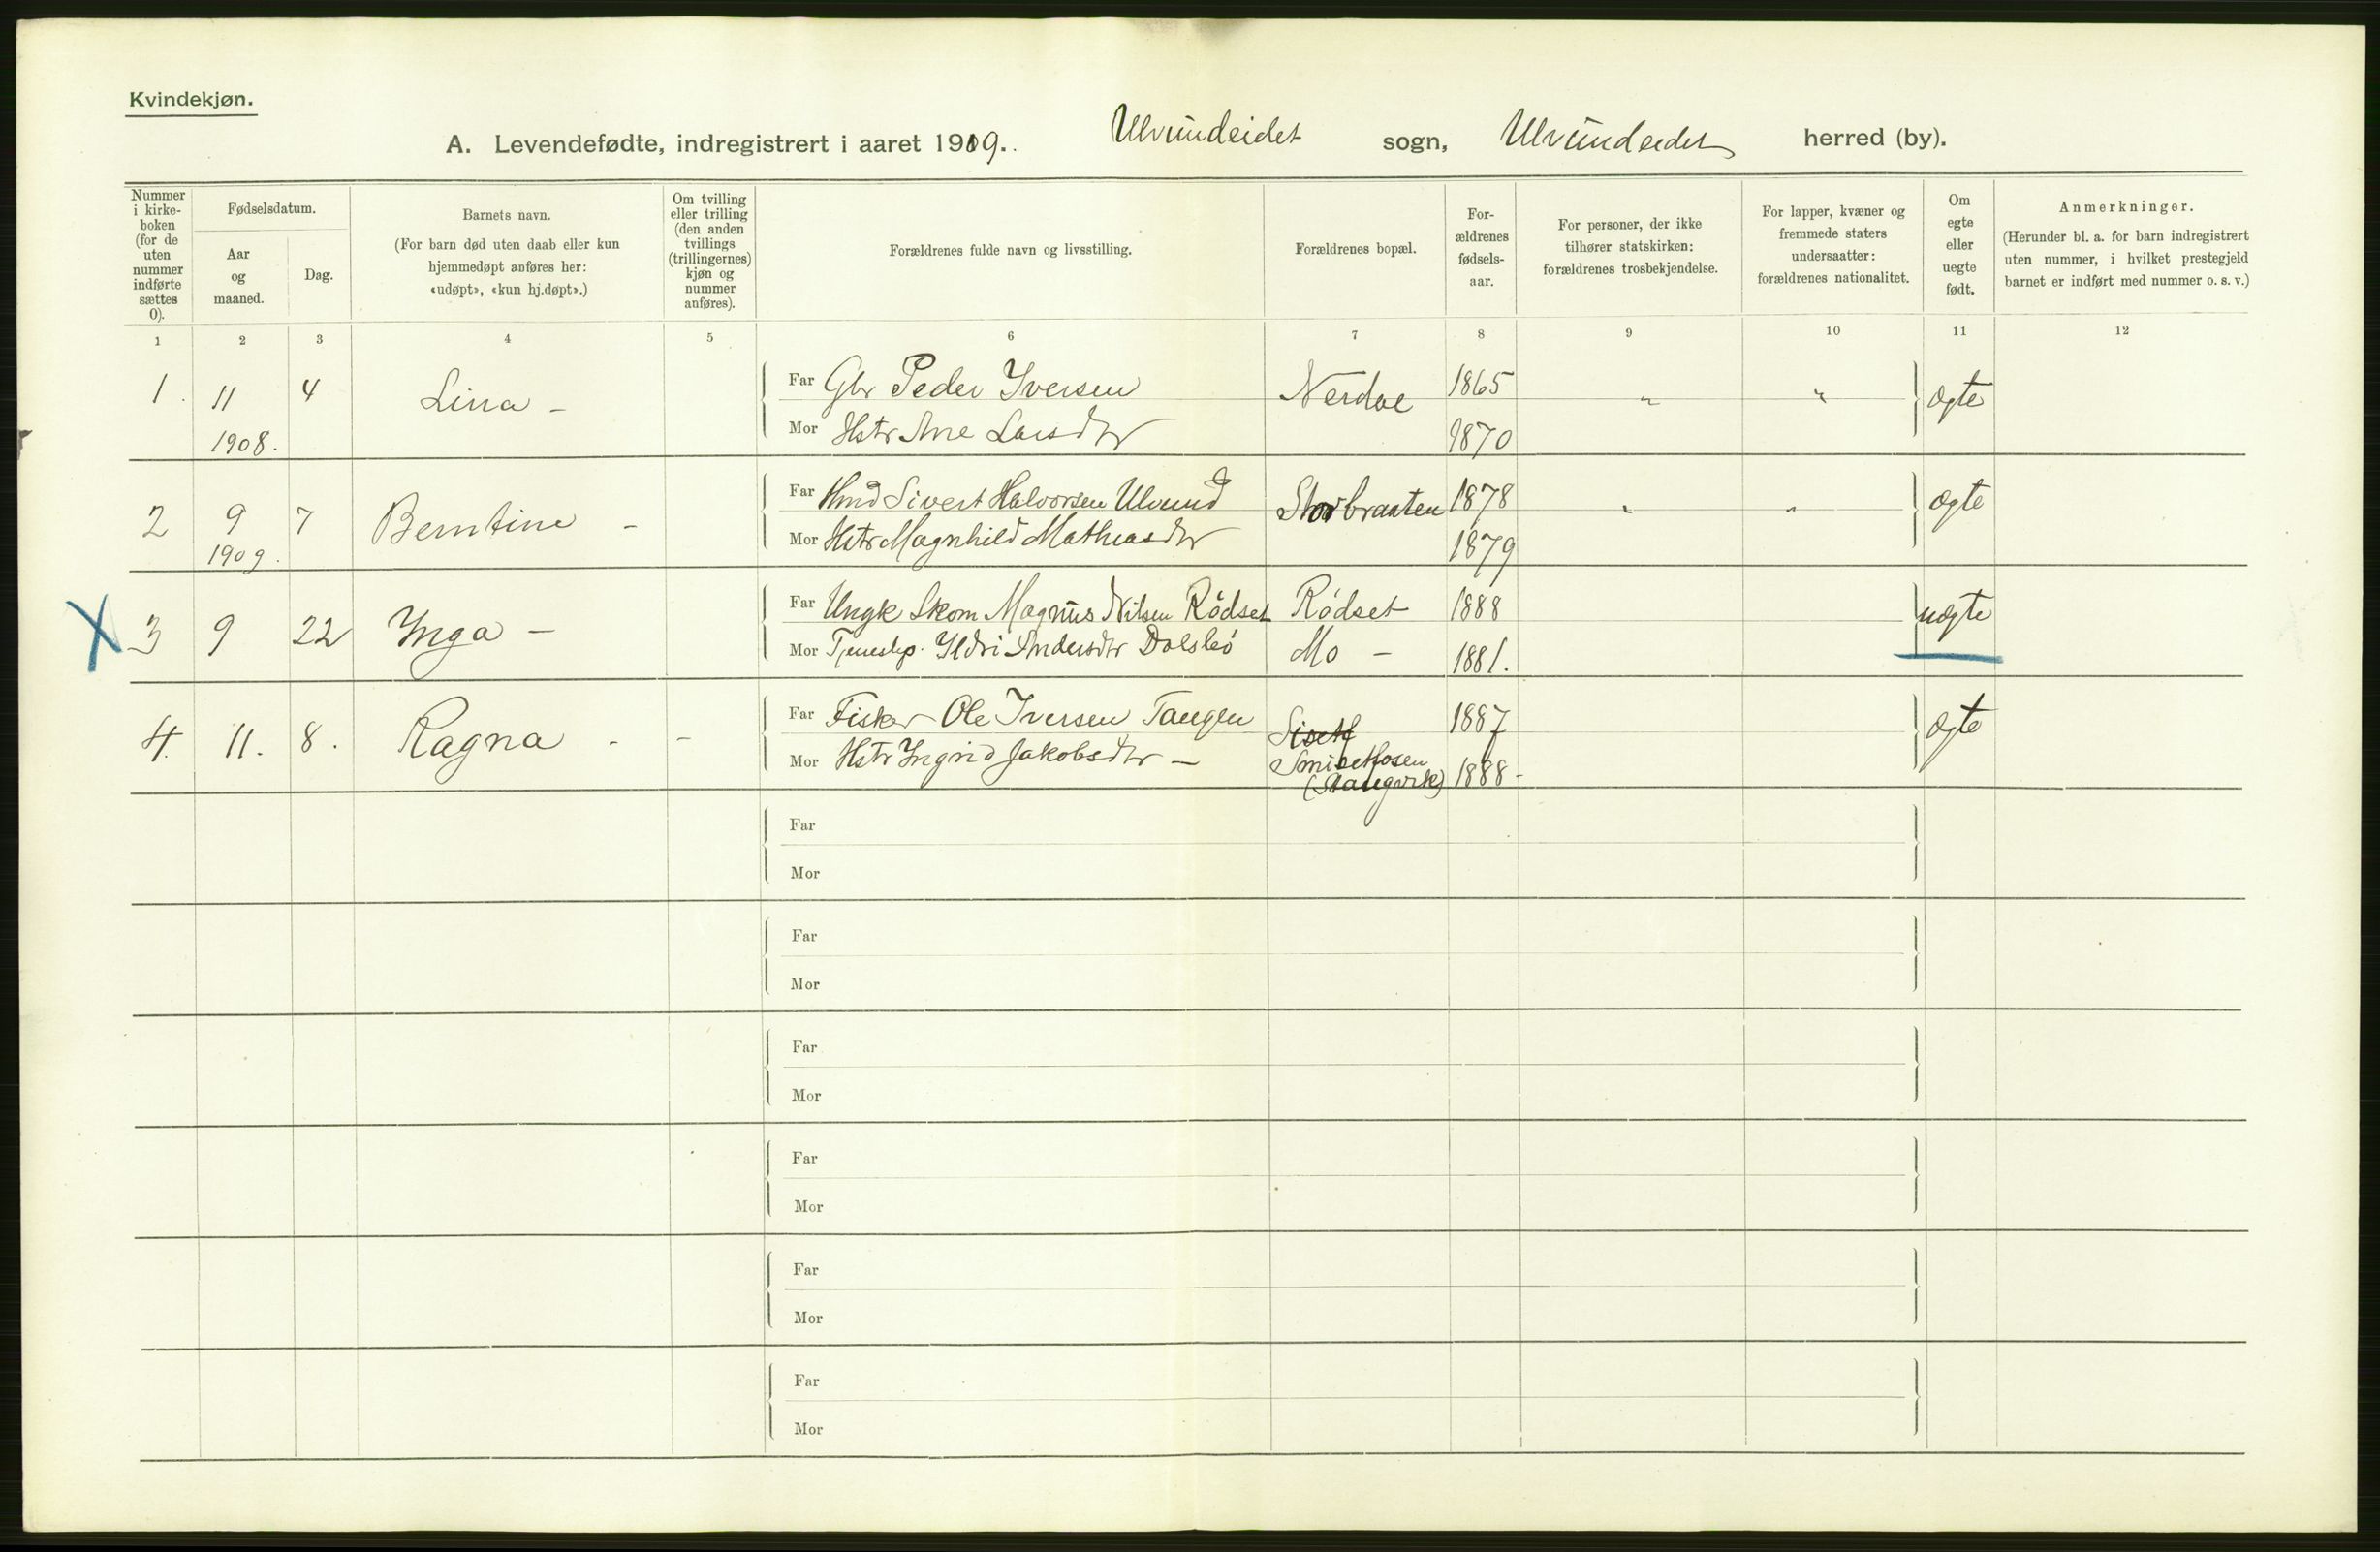 Kvindekjøn.
A. Levendefødte, indregistrert i aaret 1909. Ulvundeidet sogn, Ulvundeidet herred (by).
Nummer i kirke-boken (for de uten nummer indførte sættes 0).
Fødselsdatum.
Aar og maaned.
Dag.
Barnets navn.
(For barn død uten daab eller kun hjemmedøpt anføres her: «udøpt», «kun hj.døpt».)
Om tvilling eller trilling (den anden tvillings (trillingernes) kjøn og nummer anføres).
Forældrenes fulde navn og livsstilling.
Forældrenes bopæl.
For-ældrenes fødsels-aar.
For personer, der ikke tilhører statskirken: forældrenes trosbekjendelse.
For lapper, kvæner og fremmede staters undersaatter: forældrenes nationalitet.
Om egte eller uegte født.
Anmerkninger.
(Herunder bl. a. for barn indregistrert uten nummer, i hvilket prestegjeld barnet er indført med nummer o. s. v.)
1 2 3 4 5 6 7 8 9 10 11 12
1. 11 4 Lina - Far Gbr Peder Iversen Nerdal 1865 " " ægte
1908. Mor Hstr Ane Larsdtr 1870
2 9 7 Berntine - Far Hmd Sivert Halvorsen Ulvund Storbraaten 1878 " " ægte
1909. Mor Hstr Magnhild Mathiasdtr 1879
X 3 9 22 Inga - Far Ungk Skom Magnus Nilsen Rödset Rödset 1888 uægte
Mor Tjenestep. Ildri Andersdtr Dalslö Mo - 1881.
4. 11. 8. Ragna - - Far Fisker Ole Iversen Tangen 1887 ægte
Mor Hstr Ingrid Jakobsdtr - Smisethosen 1888 -
(Stangvik)
Far
Mor
Far
Mor
Far
Mor
Far
Mor
Far
Mor
Far
Mor